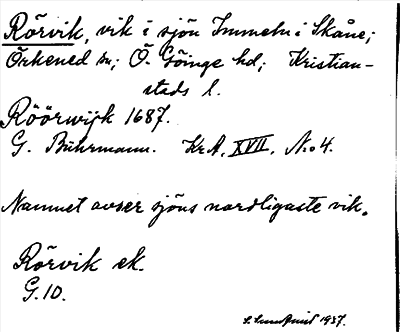 Rörvik, vik i sjön Immeln i Skåne;
Örkened sn; Ö. Göinge hd; Kristian-
stads l.
Röörwijk 1687.
G. Buhrmann. Kr.A. XVII. N:o 4.
Namnet avser sjöns nordligaste vik.
Rörvik ek.
G.10.
S. Lundquist 1937.